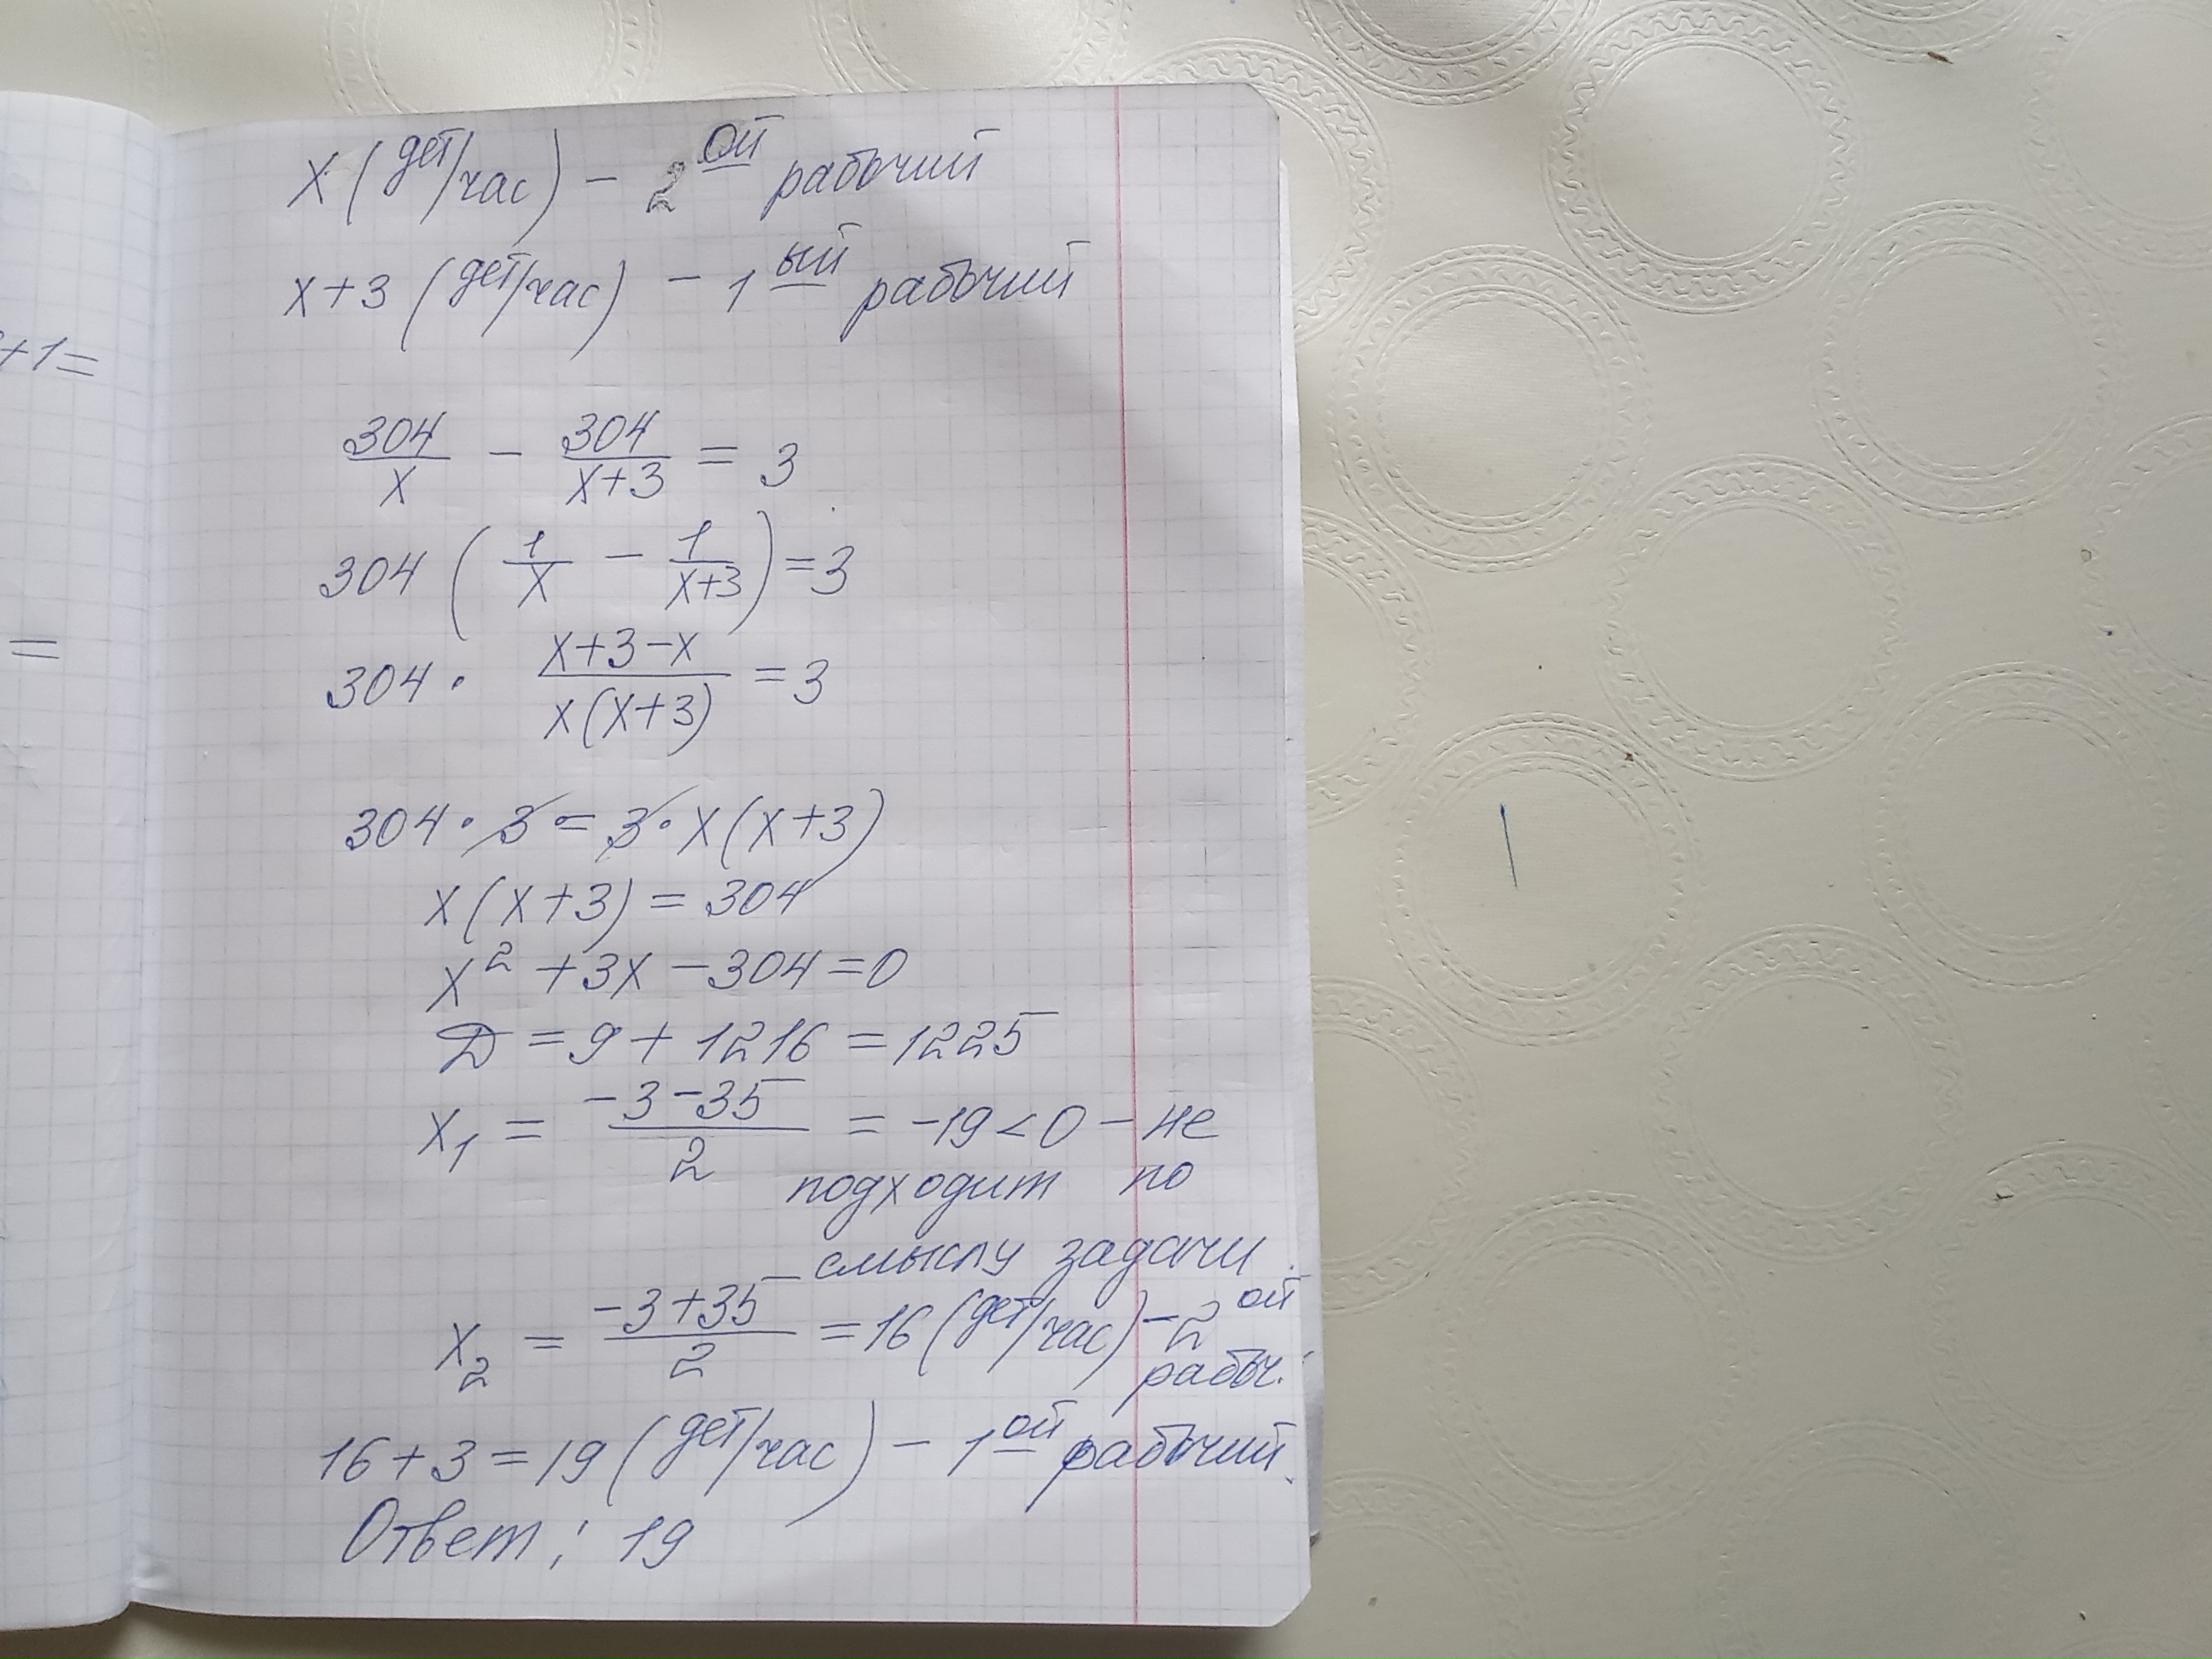 +1=
=
x (дет/час) - 2ой рабочий
x+3 (дет/час) - 1ый рабочий
304/x - 304/(x+3) = 3
304 (1/x - 1/(x+3)) = 3
304 · (x+3-x)/(x(x+3)) = 3
304 · 3 = 3 · x(x+3)
x(x+3) = 304
x² + 3x - 304 = 0
Д = 9 + 1216 = 1225
x₁ = (-3-35)/2 = -19 < 0 - не
подходит по
смыслу задачи.
x₂ = (-3+35)/2 = 16 (дет/час) - 2ой
рабоч.
16 + 3 = 19 (дет/час) - 1ой рабочий.
Ответ: 19